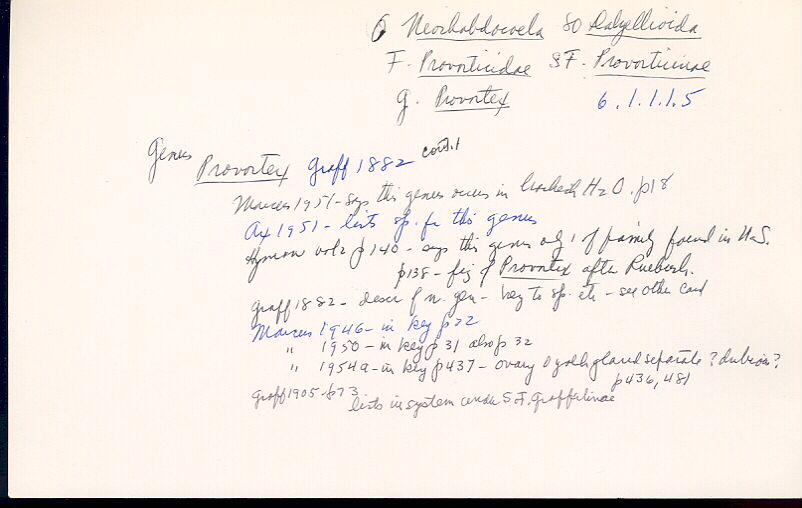 O Neorhabdocoela SO Dalyellioida
F. Provorticidae SF. Provorticinae
g. Provortex 6.1.1.1.5
Genus Provortex Graff 1882 cont.
Marcus 1951 - says this genus occurs in brackish H2O. p18
Ax 1951 - lists sp. for this genus
Hyman vol 2 p 140 - says this genus only 1 of family found in U.S.
p138 - fig of Provortex after Ruebush.
Graff 1882 - descr of n. gen - key to sp. etc - see other card
Marcus 1946 - in key p 22
" 1950 - in key p 31 also p 32
" 1954a - in key p 437 - ovary & yolk gland separate? dubious?
p436, 481
Graff 1905 - p73 lists in system under S.F. Graffillinae